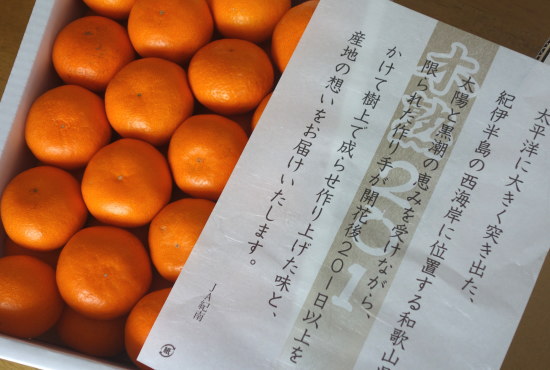 太平洋に大きく突き出た、
紀伊半島の西海岸に位置する和歌山県
太陽と黒潮の恵みを受けながら、
限られた作り手が開花後201日以上を
かけて樹上で成らせ作り上げた味と、
産地の想いをお届けいたします。
JA紀南
木熟201